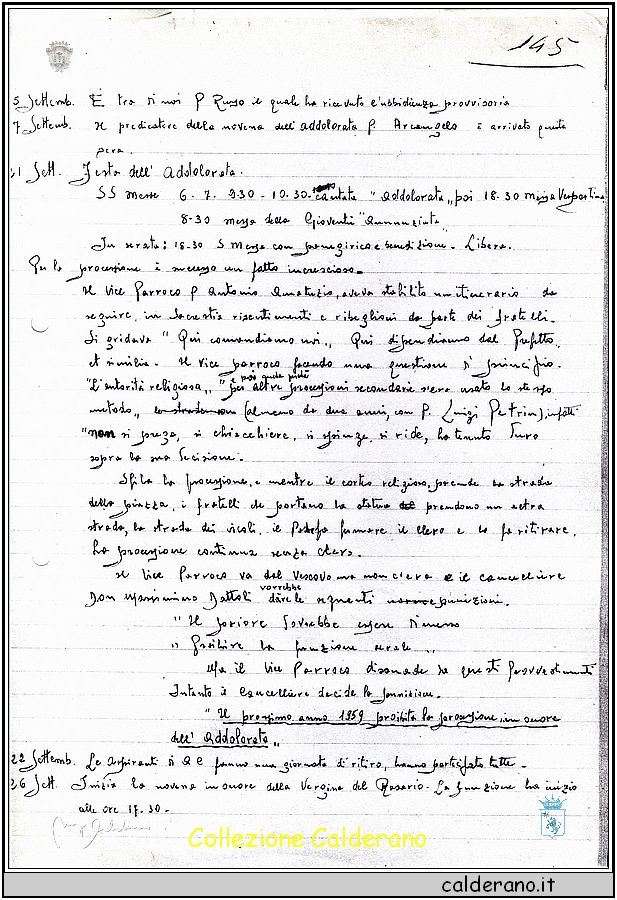 145
5 Settemb. È tra di noi P Russo il quale ha ricevuto l'ubbidienza provvisoria
7 Settemb. Il predicatore della novena dell'addolorata P. Arcangelo è arrivato questa
sera.
21 Sett. Festa dell'Addolorata.
SS Messe 6. 7. 9.30 - 10.30 - cantata "Addolorata" poi 18.30 Messa Vespertina
8.30 messa della Gioventù "Annunziata"
In serata: 18.30 S Messa con panegirico e benedizione - Libera.
Per la processione è successo un fatto increscioso -
Il Vice Parroco P Antonio Amatuzio, aveva stabilito un itinerario da
seguire, in Sacrestia risentimenti e ribellioni da parte dei fratelli.
Si gridava "Qui comandiamo noi", Qui dipendiamo dal Prefetto
et similia. Il vice parroco facendo una questione di principio.
"L'autorità religiosa," è poi per altre processioni secondarie s'era usato lo stesso
metodo, (almeno da due anni, con P. Luigi Petrin), infatti
"non si prega, si chiacchiere, si spinge, si ride, ha tenuto duro
sopra la sua decisione.
Sfila la processione, e mentre il corteo religioso, prende la strada
della piazza, i fratelli che portano la statua prendono un'altra
strada, la strada dei vicoli, il P. fa fermare il clero e lo fa ritirare.
La processione continua senza clero.
Il Vice Parroco va dal Vescovo ma non c'era e il cancelliere
Don Massimino Dattoli vorrebbe dare le seguenti punizioni.
"Il priore dovrebbe essere dimesso
" Proibire la funzione serale "
Ma il Vice Parroco dissuade da questi provvedimenti
Intanto il Cancelliere decide la punizione.
"Il prossimo anno 1959 proibita la processione, in onore
dell'Addolorata"
22 Settemb. Le aspiranti di AC fanno una giornata di ritiro, hanno partecipato tutte -
26 Sett. Inizia la novena in onore della Vergine del Rosario. La funzione ha inizio
alle ore 17.30 -
Collezione Calderano
calderano.it